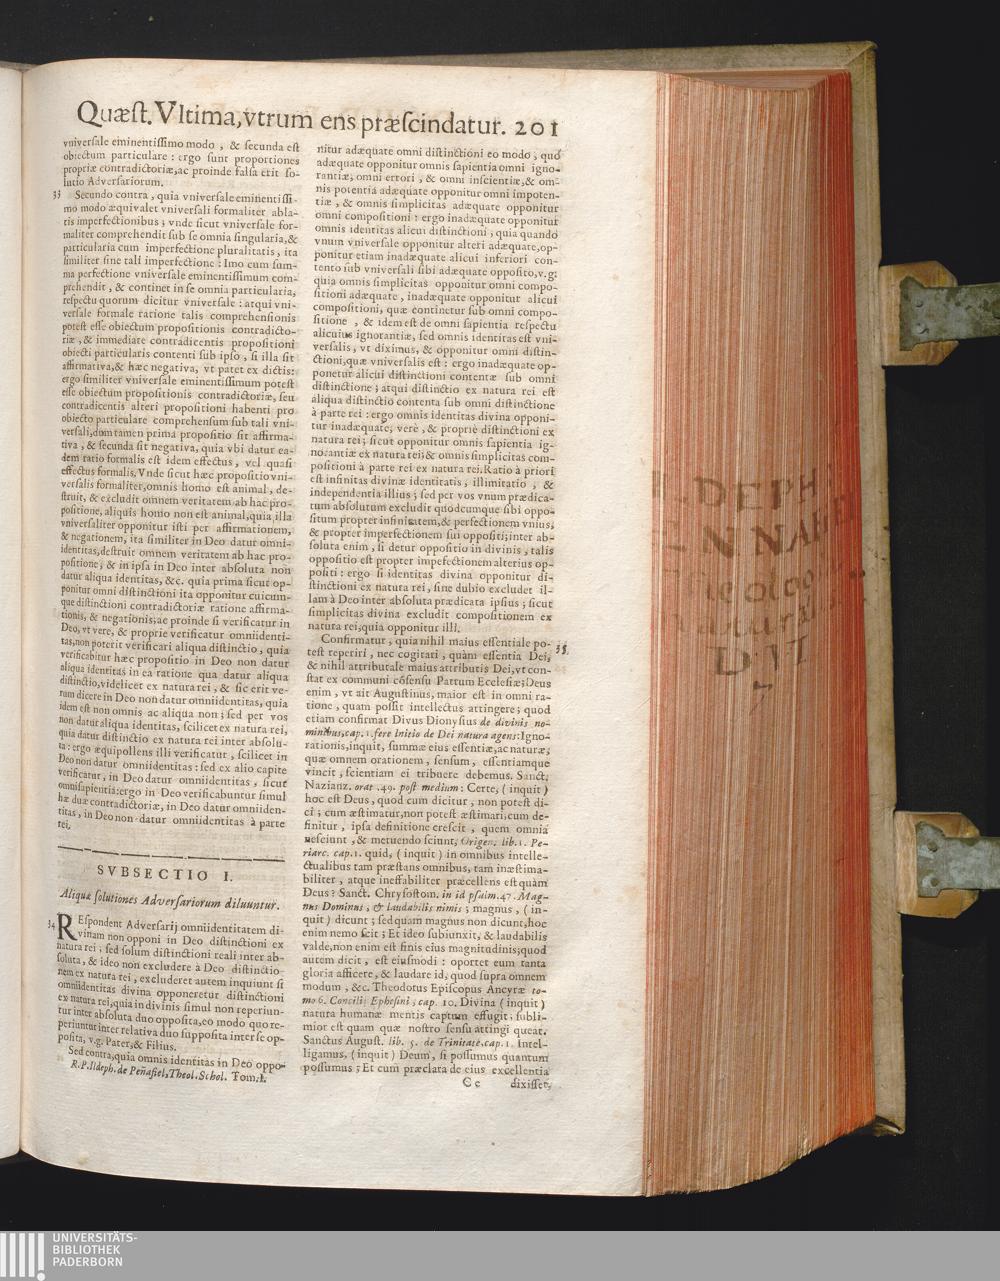 Quæst. Vltima, vtrum ens præscindatur. 201
vniversale eminentissimo modo, & secunda est
obiectum particulare: ergo sunt proportiones
propriæ contradictoriæ, ac proinde falsa erit so-
lutio Adversariorum.
33 Secundo contra, quia vniversale eminentissi-
mo modo æquivalet vniversali formaliter abla-
tis imperfectionibus; vnde sicut vniversale for-
maliter comprehendit sub se omnia singularia, &
particularia cum imperfectione pluralitatis, ita
similiter sine tali imperfectione: Imo cum sum-
ma perfectione vniversale eminentissimum com-
prehendit, & continet in se omnia particularia,
respectu quorum dicitur vniversale: atqui vni-
versale formale ratione talis comprehensionis
potest esse obiectum propositionis contradicto-
riæ, & immediate contradicentis propositioni
obiecti particularis contenti sub ipso, si illa sit
affirmativa, & hæc negativa, vt patet ex dictis:
ergo similiter vniversale eminentissimum potest
esse obiectum propositionis contradictoriæ, seu
contradicentis alteri propositioni habenti pro
obiecto particulare comprehensum sub tali vni-
versali, dum tamen prima propositio sit affirma-
tiva, & secunda sit negativa, quia vbi datur ea-
dem ratio formalis est idem effectus, vel quasi
effectus formalis. Vnde sicut hæc propositio vni-
versalis formaliter, omnis homo est animal, de-
struit, & excludit omnem veritatem ab hac pro-
positione, aliquis homo non est animal, quia illa
vniversaliter opponitur isti per affirmationem,
& negationem, ita similiter in Deo datur omni-
identitas, destruit omnem veritatem ab hac pro-
positione; & in ipsa in Deo inter absoluta non
datur aliqua identitas, &c. quia prima sicut op-
ponitur omni distinctioni ita opponitur cuicum-
que distinctioni contradictoriæ ratione affirma-
tionis, & negationis; ac proinde si verificatur in
Deo, vt vere, & proprie verificatur omniidenti-
tas, non poterit verificari aliqua distinctio, quia
verificabitur hæc propositio in Deo non datur
aliqua identitas in ea ratione qua datur aliqua
distinctio, videlicet ex natura rei, & sic erit ve-
rum dicere in Deo non datur omniidentitas, quia
idem est non omnis ac aliqua non; sed per vos
non datur aliqua identitas, scilicet ex natura rei,
quia datur distinctio ex natura rei inter absolu-
ta: ergo æquipollens illi verificatur, scilicet in
Deo non datur omniidentitas: sed ex alio capite
verificatur, in Deo datur omniidentitas, sicut
omnisapientia: ergo in Deo verificabuntur simul
hæ duæ contradictoriæ, in Deo datur omniiden-
titas, in Deo non datur omniidentitas à parte
rei.
SVBSECTIO I.
Aliquæ solutiones Adversariorum diluuntur.
34 REspondent Adversarij omniidentitatem di-
vinam non opponi in Deo distinctioni ex
natura rei; sed solum distinctioni reali inter ab-
soluta, & ideo non excludere à Deo distinctio-
nem ex natura rei, excluderet autem inquiunt si
omniidentitas divina opponeretur distinctioni
ex natura rei, quia in divinis simul non reperiun-
tur inter absoluta duo opposita, eo modo quo re-
periuntur inter relativa duo supposita inter se op-
posita, v.g. Pater, & Filius.
Sed contra, quia omnis identitas in Deo oppo-
R.P. Ildeph. de Peñafiel, Theol. Schol. Tom. I.
nitur adæquate omni distinctioni eo modo, quo
adæquate opponitur omnis sapientia omni igno-
rantiæ; omni errori, & omni inscientiæ, & om-
nis potentia adæquate opponitur omni impoten-
tiæ, & omnis simplicitas adæquate opponitur
omni compositioni: ergo inadæquate opponitur
omnis identitas alicui distinctioni; quia quando
vnum vniversale opponitur alteri adæquate, op-
ponitur etiam inadæquate alicui inferiori con-
tento sub vniversali sibi adæquate opposito, v.g:
quia omnis simplicitas opponitur omni compo-
sitioni adæquate, inadæquate opponitur alicui
compositioni, quæ continetur sub omni compo-
sitione, & idem est de omni sapientia respectu
alicuius ignorantiæ, sed omnis identitas est vni-
versalis, vt diximus, & opponitur omni distin-
ctioni, quæ vniversalis est: ergo inadæquate op-
ponetur alicui distinctioni contentæ sub omni
distinctione; atqui distinctio ex natura rei est
aliqua distinctio contenta sub omni distinctione
à parte rei: ergo omnis identitas divina opponi-
tur inadæquate, verè, & propriè distinctioni ex
natura rei; sicut opponitur omnis sapientia ig-
norantiæ ex natura rei; & omnis simplicitas com-
positioni à parte rei ex natura rei. Ratio à priori
est infinitas divinæ identitatis, illimitatio, &
independentia illius; sed per vos vnum prædica-
tum absolutum excludit quodcumque sibi oppo-
situm propter infinitatem, & perfectionem vnius,
& propter imperfectionem sui oppositi; inter ab-
soluta enim, si detur oppositio in divinis, talis
oppositio est propter imperfectionem alterius op-
positi: ergo si identitas divina opponitur di-
stinctioni ex natura rei, sine dubio excludet il-
lam à Deo inter absoluta prædicata ipsius; sicut
simplicitas divina excludit compositionem ex
natura rei, quia opponitur illi.
Confirmatur, quia nihil maius essentiale po- 35.
test reperiri, nec cogitari, quàm essentia Dei,
& nihil attributale maius attributis Dei, vt con-
stat ex communi cõsensu Patrum Ecclesiæ; Deus
enim, vt ait Augustinus, maior est in omni ra-
tione, quam possit intellectus attingere; quod
etiam confirmat Divus Dionysius de divinis no-
minibus, cap. 1. fere Initio de Dei natura agens: Igno-
rationis, inquit, summæ eius essentiæ, ac naturæ,
quæ omnem orationem, sensum, essentiamque
vincit, scientiam ei tribuere debemus. Sanct.
Nazianz. orat. 49. post medium: Certe, (inquit)
hoc est Deus, quod cum dicitur, non potest di-
ci; cum æstimatur, non potest æstimari; cum de-
finitur, ipsa definitione crescit, quem omnia
nesciunt, & metuendo sciunt; Origen. lib. 1. Pe-
riarc. cap. 1. quid, (inquit) in omnibus intelle-
ctualibus tam præstans omnibus, tam inæstima-
biliter, atque ineffabiliter præcellens est quàm
Deus? Sanct. Chrysostom. in id psalm. 47. Mag-
nus Dominus, & laudabilis nimis; magnus, (in-
quit) dicunt; sed quam magnus non dicunt, hoc
enim nemo scit; Et ideo subiunxit, & laudabilis
valde, non enim est finis eius magnitudinis; quod
autem dicit, est eiusmodi: oportet eum tanta
gloria afficere, & laudare id, quod supra omnem
modum, &c. Theodotus Episcopus Ancyræ to-
mo 6. Concilij Ephesini, cap. 10. Divina (inquit)
natura humanæ mentis captum effugit; subli-
mior est quam quæ nostro sensu attingi queat.
Sanctus August. lib. 5. de Trinitate. cap. 1. Intel-
ligamus, (inquit) Deum, si possumus quantum
possumus; Et cum præclara de eius excellentia
Cc dixisset,
DVI
UNIVERSITÄTS-
BIBLIOTHEK
PADERBORN